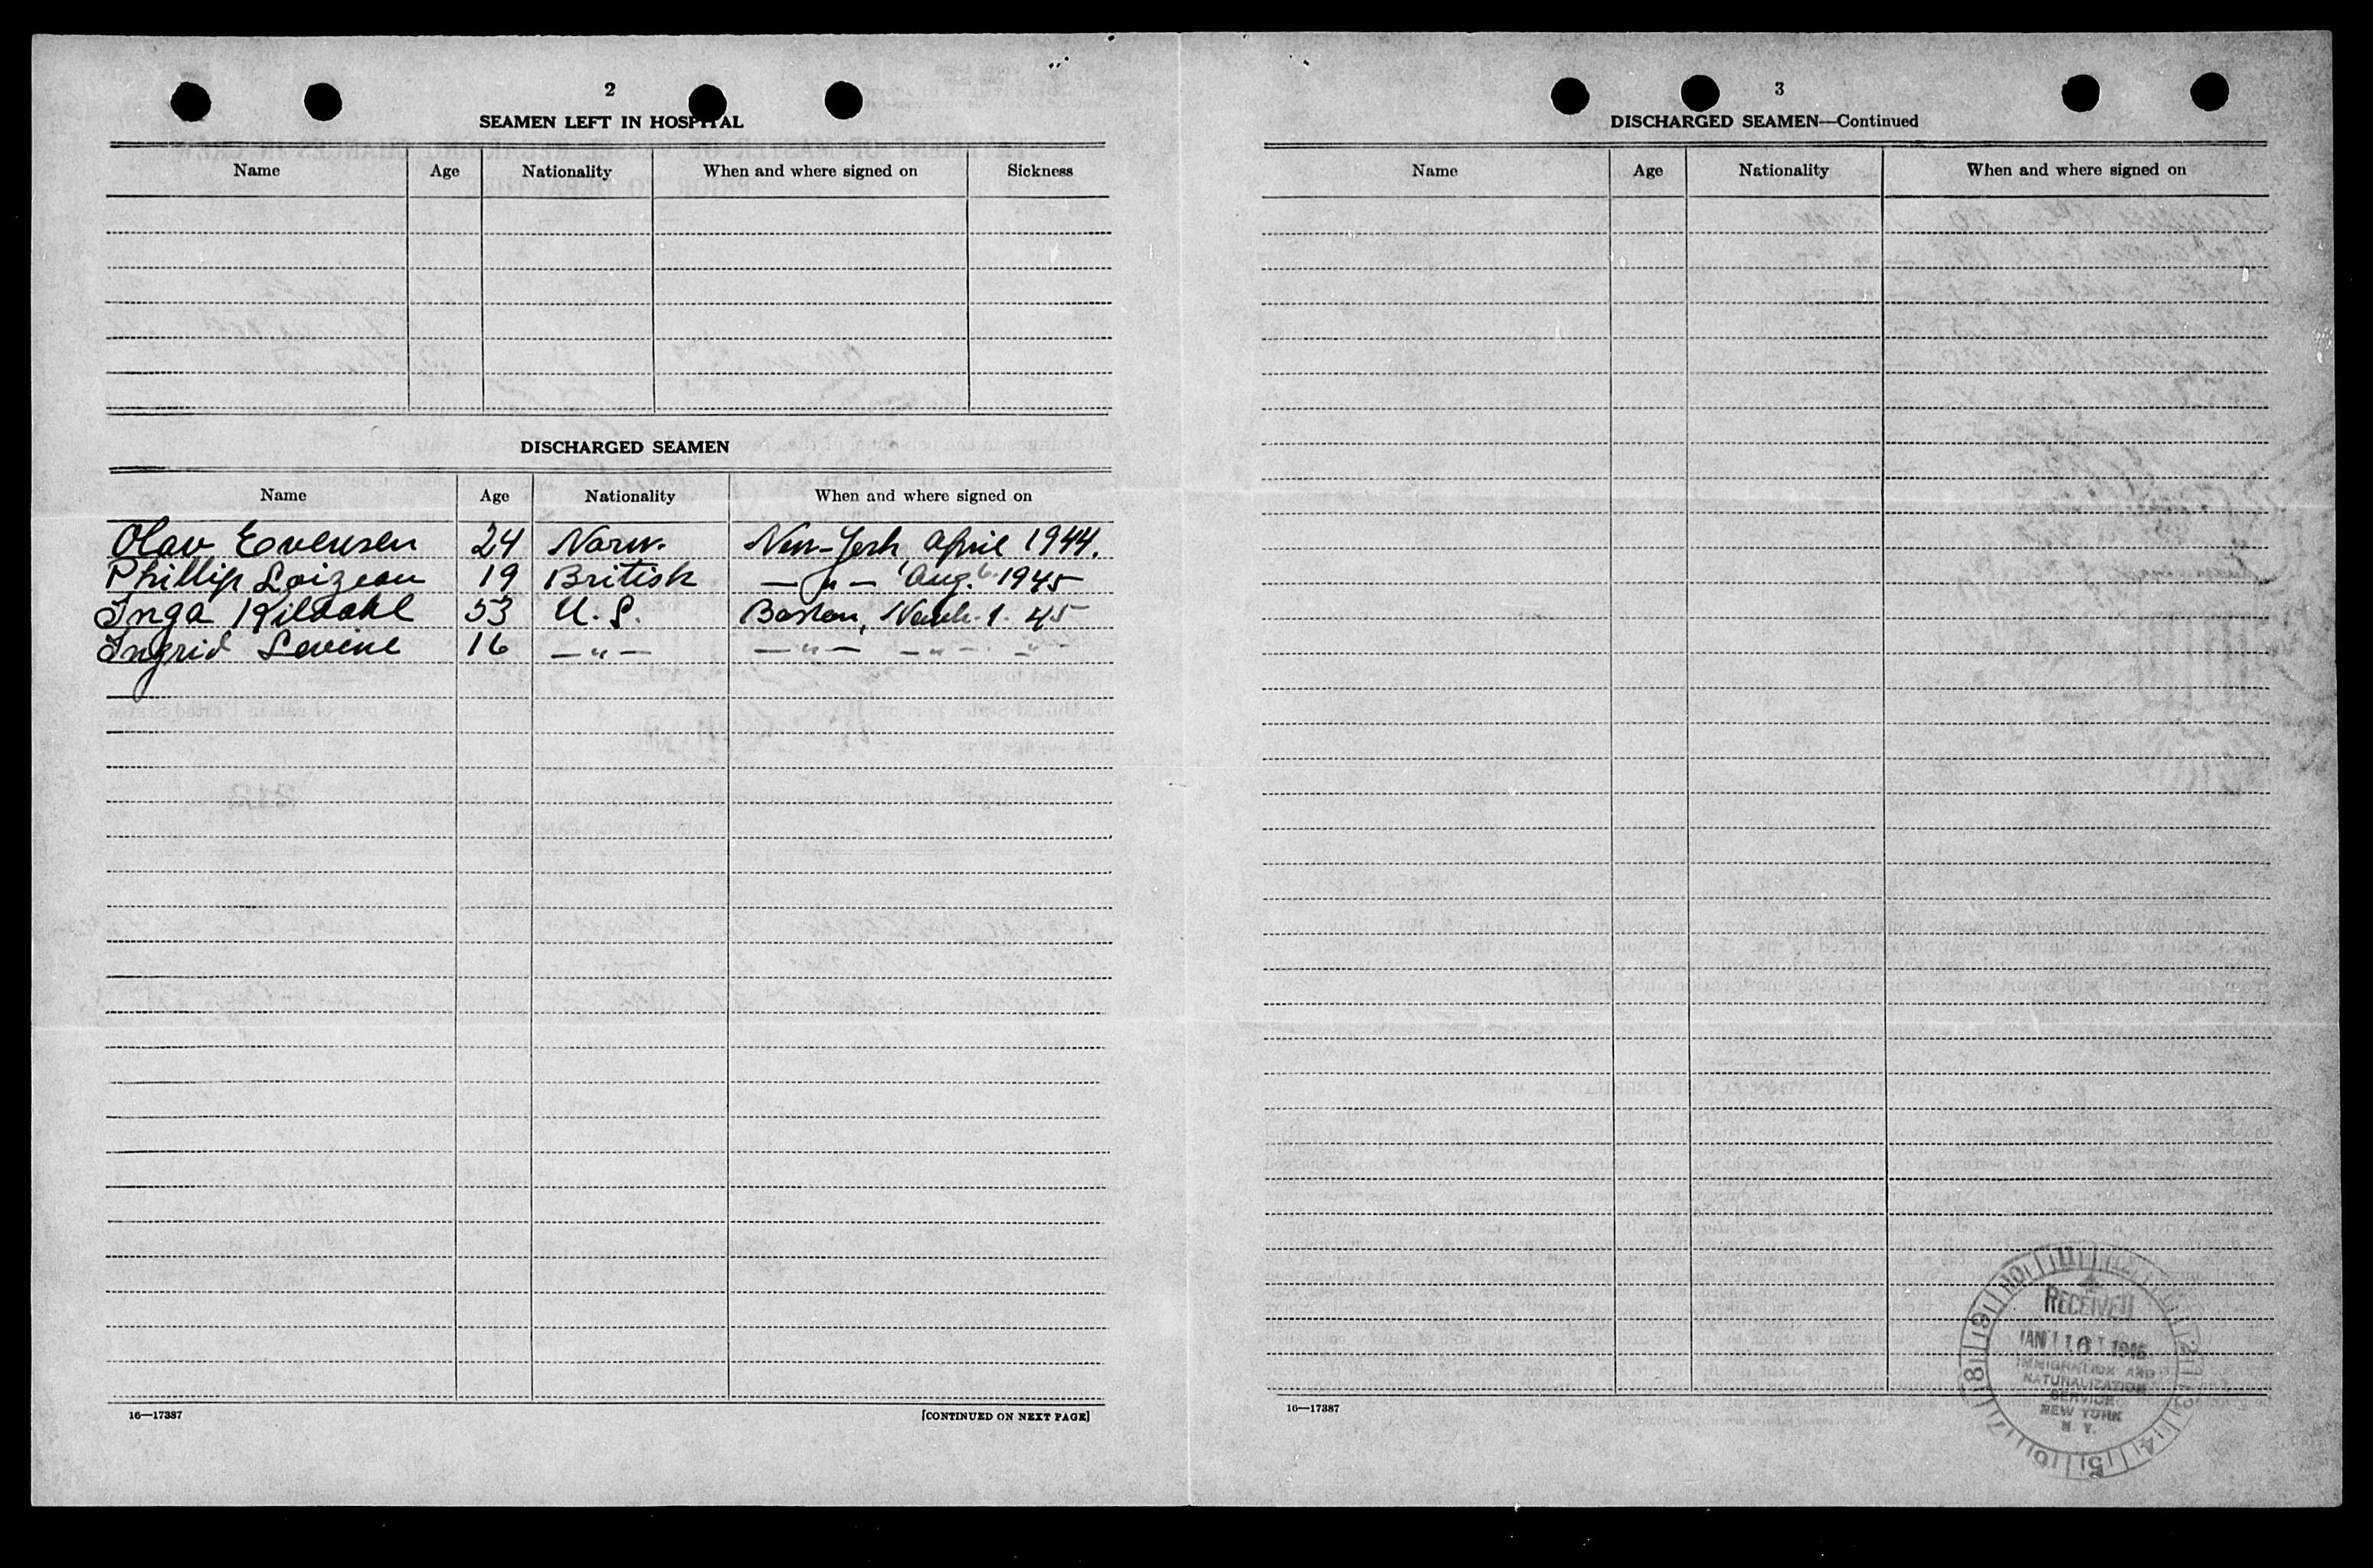 2
SEAMEN LEFT IN HOSPITAL
Name Age Nationality When and where signed on Sickness
DISCHARGED SEAMEN
Name Age Nationality When and where signed on
Olav Evensen 24 Norw. New-York, April 1944.
Phillip Loizeau 19 British — " — Aug. 6. 1945
Inga Kildahl 53 U.S. Boston, 1. 45
Ingrid Levine 16 — " — — " — — " — — " —
16—17387 [CONTINUED ON NEXT PAGE]
3
DISCHARGED SEAMEN—Continued
Name Age Nationality When and where signed on
16—17387
RECEIVED
JAN 16 1946
IMMIGRATION AND
NATURALIZATION
SERVICE
NEW YORK
N. Y.